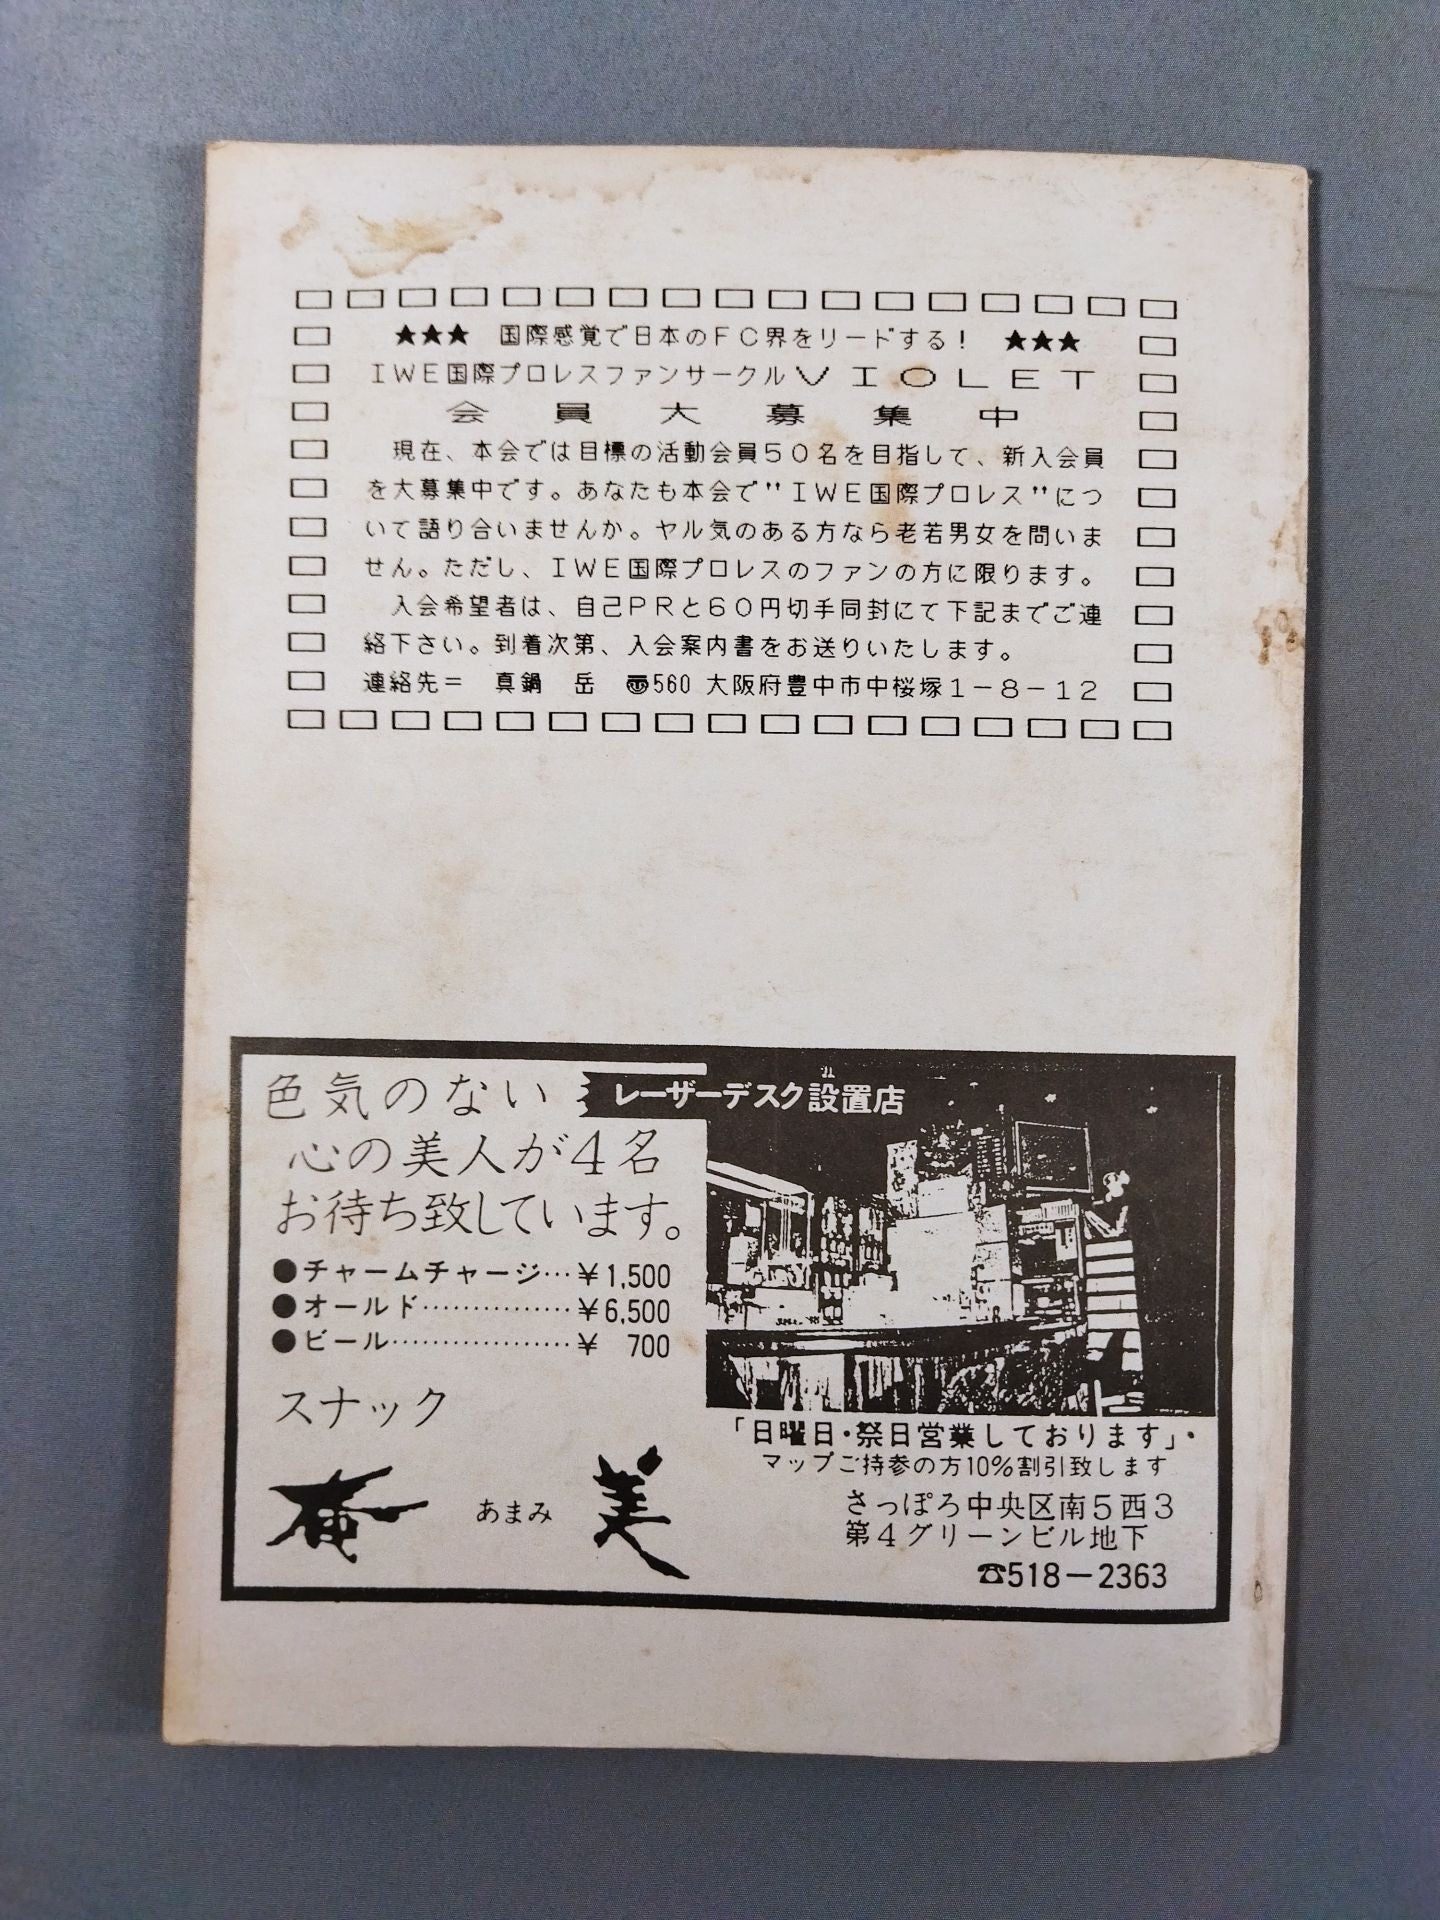 ★★★ 国際感覚で日本のFC界をリードする! ★★★
IWE国際プロレスファンサークルVIOLET
会員大募集中
現在、本会では目標の活動会員50名を目指して、新入会員
を大募集中です。あなたも本会で"IWE国際プロレス"につ
いて語り合いませんか。ヤル気のある方なら老若男女を問いま
せん。ただし、IWE国際プロレスのファンの方に限ります。
入会希望者は、自己PRと60円切手同封にて下記までご連
絡下さい。到着次第、入会案内書をお送りいたします。
連絡先= 真鍋 岳 〠560 大阪府豊中市中桜塚1-8-12
色気のない
心の美人が4名
お待ち致しています。
●チャームチャージ…¥1,500
●オールド……………¥6,500
●ビール………………¥ 700
スナック
奄美
あまみ
レーザーデスク設置店
「日曜日・祭日営業しております」・
マップご持参の方10%割引致します
さっぽろ中央区南5西3
第4グリーンビル地下
☎518-2363